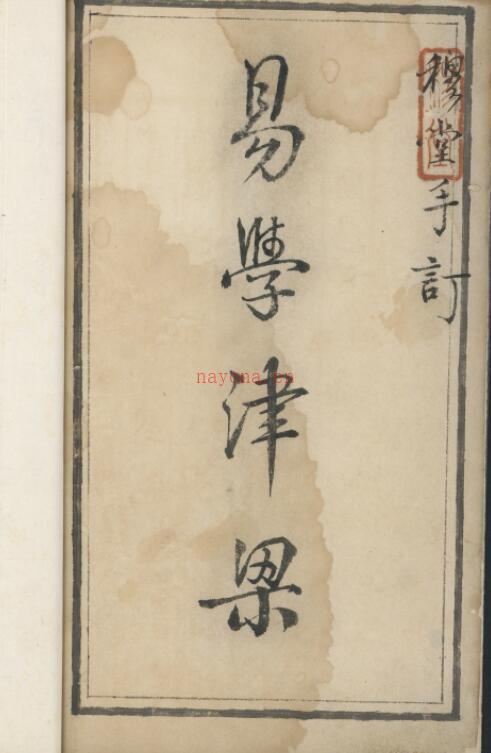 穆堂手訂
易學津梁